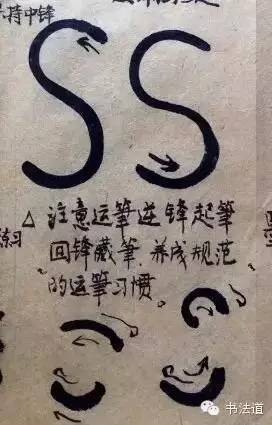 持中锋
SS
△注意运筆逆锋起筆
回锋藏筆.养成规范
的运筆习惯。
练习
书法道